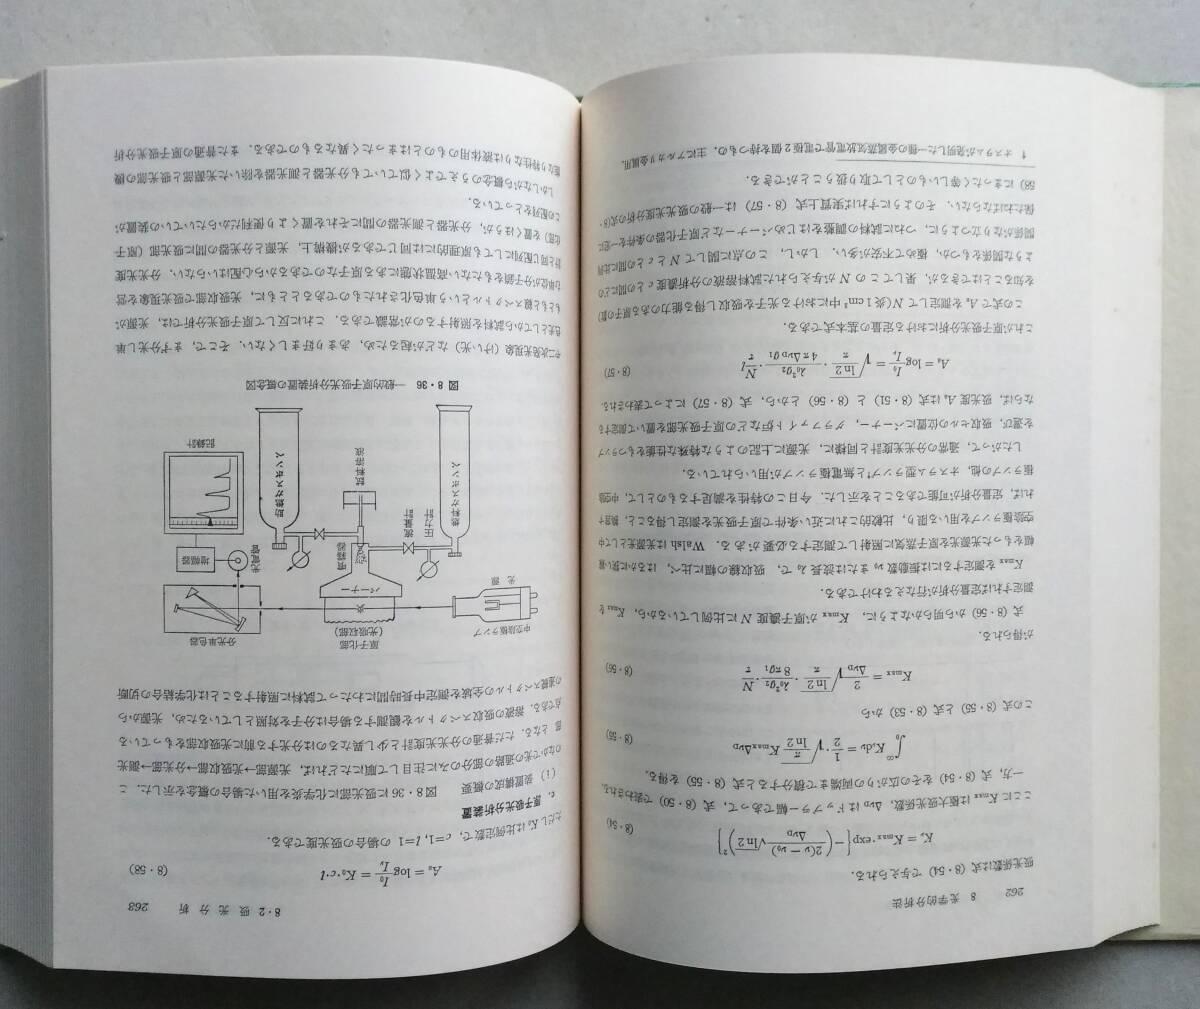 262　　8　光学的分析法
吸光係数は式 (8・54) で与えられる.
K_ν = K_max・exp{−(2(ν−ν₀)/Δν_D √ln 2)²}　　(8・54)
ここに K_max は極大吸光係数, Δν_D はドップラー幅であって, 式 (8・50) で表わされる.
一方, 式 (8・54) をその広がりの両端まで積分すると式 (8・55) を得る.
∫₀^∞ K_ν dν = 1/2・√(π/ln 2) K_max Δν_D　　(8・55)
この式 (8・55) と式 (8・53) から
K_max = 2/Δν_D √(ln 2/π)・λ₀²g₂/8πg₁・N/τ　　(8・56)
が得られる.
式 (8・56) から明らかなように, K_max が原子濃度 N に比例しているから, K_max を
測定すれば定量分析が行なえるわけである.
K_max を測定するには振動数 ν₀ または波長 λ₀ で, 吸収線の幅に比べ, はるかに狭い線
幅をもった光源を原子蒸気に照射して測定する必要がある. Walsh は光源として中
空陰極ランプを用いる限り, 比較的これに近い条件で原子吸光を測定し得ること, 換言す
れば, 定量分析が可能であることを示した. 今日この特性を満足するものとして, 中空陰
極ランプの他, オスラム型ランプ¹と無電極ランプが用いられている.
したがって, 通常の分光光度計と同様に, 光源に上記のような特殊な性能をもつランプ
を選び, 吸収セルの位置にバーナー, グラファイト炉などの原子吸光部を置いて測定する
ならば, 吸光度 A_a は式 (8・51) と (8・56) とから, 式 (8・57) によって表わされる.
A_a = log I₀/I_ν = √(ln 2/π)・λ₀²g₂/4πΔν_D g₁・N/τ l　　(8・57)
これが原子吸光分析における定量の基本式である.
この式で A_a を測定して N (炎 1 cm³ 中における光子を吸収し得る能力のある原子の数)
を知ることはできるが, 果してこの N が与えられた試料溶液の分析濃度 c との間にどの
ような関係をもつか, 極めて不安が多い. しかし, この点に関して N と c との間に比例
関係がなり立つように, つねに試料の調製をはじめバーナーなど原子化器の条件を一定に
保たねばならない. そのようにすれば実質上式 (8・57) は一般の吸光光度分析の式 (8・
58) にまったく等しいものとして取り扱うことができる.
1　オスラムが発明した一種の金属蒸気放電管で電極 2 個を持つもの. 主にアルカリ金属用.
8・2　吸　光　分　析　　263
A_a = log I₀/I_ν = K₀・c・l　　(8・58)
ただし K₀ は比例定数で, c=1, l=1 の場合の吸光度である.
c. 原子吸光分析装置
(i) 装置構成の概要　図 8・36 に吸光部に化学炎を用いた場合の概念を示した. こ
のなかで光の通路の部分のみに注目して順にたどれば, 光源部→吸光部→分光部→測光
部 となる. ただ普通の分光光度計と少し異なるのは分光する前に光吸収部をもっている
点である. 溶液の吸収スペクトルを観測する場合は分子を対照としているため, 光源から
の連続スペクトルの全域を測定中長時間にわたって試料に照射することは化学結合の切断
中空陰極ランプ
光　源
原子化部
(光吸収部)
炎
バーナー
分光単色器
噴霧器
光電管
増幅器
圧力計
流量計
燃料ガスボンベ
試料溶液
助燃ガスボンベ
記録計
図 8・36　一般的原子吸光分析装置の概念図
や二次発光現象 (けい光) などが起るため, あまり好ましくない. そこで, まず分光し単
色光としてから試料を照射するのが常識である. これに反して原子吸光分析では, 光源が
もともと線スペクトルという単色化されたものであるとともに, 光吸収部で吸光現象を営
む単位が分子鎖をもたない高温状態にある原子なのであるから心配はいらない. 分光光度
計と同じ配列にしても原理的には同じであるが機構上, 光源と分光器の間に吸光部 (原子
化部) を置くほうが, 分光器と測光器の間にそれを置くより便利だからたいていの装置が
この配列をとっている.
しかしながら概念のうえでよく似ていても分光器と測光器を除いた光源部と吸光部の機
能なり特性なりは液体用のものとはまったく異なるものである. また普通の原子吸光分析